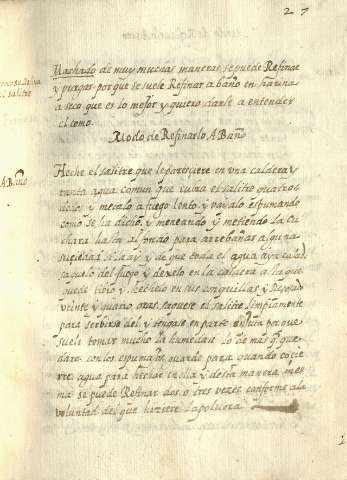 27
Machado de muy muchas maneras se puede Refinar
y purgar porque se suele Refinar a baño en harina
a seco que es lo mejor y quiero darle a entender
el como.
Modo de Refinarlo A Baño
A Baño
Heche el salitre que le pareciere en una caldera y
tanta agua comun que cubra el salitre quatro
dedos y metalo a fuego lento y vayalo espumando
como se ha dicho, y meneando y metiendo la cu
chara hasta el fondo para arrebañar alguna
suciedad si la ay y de que toda el agua aya
saquelo del fuego y dexelo en la caldera a la que
quede tibio y hechelo en sus conguillas y Despues
veinte y quatro oras saquese el salitre limpiamente
para servirse del y tengase en parte enjuta porque
suele tomar mucho la humedad lo de mas que que
dare con los espumajes guarde para quando cocie
re agua para hechar en ella y desta manera mes
ma se puede Refinar dos o tres vezes conforme a la
voluntad del que hiziere la polvora